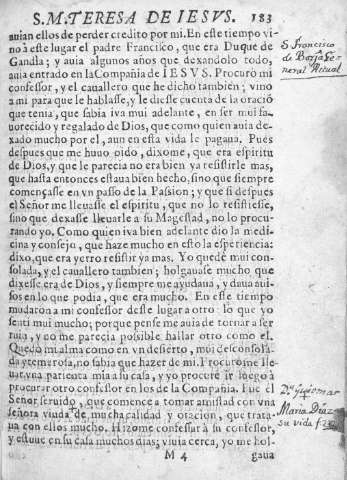 S. M. TERESA DE IESVS. 183
auian ellos de perder credito por mi. En este tiempo vi-
no à este lugar el padre Francisco, que era Duque de
Gandia; y auia algunos años que dexandolo todo,
auia entrado en la Compañia de IESVS. Procurò mi
confessor, y el cauallero que he dicho tambien; vino
a mi para que le hablasse, y le diesse cuenta de la oraciõ
que tenia, que sabia iva mui adelante, en ser mui fa-
uorecido y regalado de Dios, que como quien auia de-
xado mucho por el, aun en esta vida le pagaua. Pues
despues que me huuo oido, dixome, que era espiritu
de Dios, y que le parecia no era bien ya resistirle mas,
que hasta entonces estaua bien hecho, sino que siempre
començasse en vn passo de la Passion; y que si despues
el Señor me lleuasse el espiritu, que no lo resistiesse,
sino que dexasse lleuarle a su Magestad, no lo procu-
rando yo. Como quien iva bien adelante dio la medi-
cina y consejo, que haze mucho en esto la esperiencia:
dixo, que era yerro resistir ya mas. Yo quedè mui con-
solada, y el cauallero tambien; holgauase mucho que
dixesse era de Dios, y siempre me ayudaua, y daua aui-
sos en lo que podia, que era mucho. En este tiempo
mudaron a mi confessor deste lugar a otro: lo que yo
senti mui mucho; porque pensè me auia de tornar a ser
ruin, y no me parecia possible hallar otro como el.
Quedò mi alma como en vn desierto, mui desconsola-
da y temerosa, no sabia que hazer de mi. Procuròme lle-
uar vna parienta mia a su casa, y yo procurè ir luego à
procurar otro confessor en los de la Compañia. Fue el
Señor seruido, que comencè a tomar amistad con vna
señora viuda de mucha calidad y oracion, que trata-
ua con ellos mucho. Hizome confessar à su confessor,
y estuue en su casa muchos dias; viuia cerca, yo me hol-
M 4 gaua
S. Francisco
de Borja Ge-
neral Actual
Dª. Guiomar
Maria Diaz
su vida f.